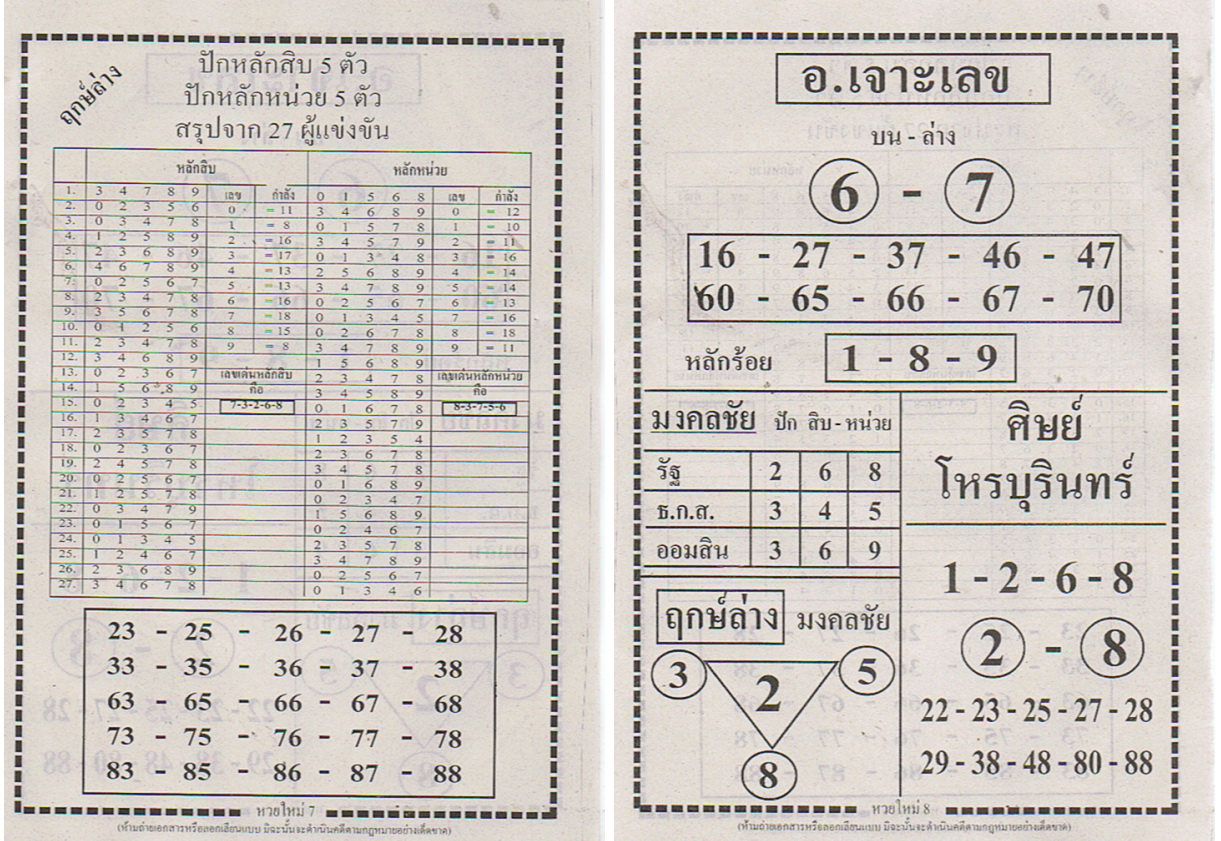 ฤกษ์ล่าง
ปักหลักสิบ 5 ตัว
ปักหลักหน่วย 5 ตัว
สรุปจาก 27 ผู้แข่งขัน
หลักสิบ หลักหน่วย
เลข กำลัง เลข กำลัง
1. 3 4 7 8 9 0 1 5 6 8
2. 0 2 3 5 6 0 = 11 3 4 6 8 9 0 = 12
3. 0 3 4 7 8 1 = 8 0 1 5 7 8 1 = 10
4. 1 2 5 8 9 2 = 16 3 4 5 7 9 2 = 11
5. 2 3 6 8 9 3 = 17 0 1 3 4 8 3 = 16
6. 4 6 7 8 9 4 = 13 2 5 6 8 9 4 = 14
7. 0 2 5 6 7 5 = 13 3 4 7 8 9 5 = 14
8. 2 3 4 7 8 6 = 16 0 2 5 6 7 6 = 13
9. 3 5 6 7 8 7 = 18 0 1 3 4 5 7 = 16
10. 0 1 2 5 6 8 = 15 0 2 6 7 8 8 = 18
11. 2 3 4 7 8 9 = 8 3 4 7 8 9 9 = 11
12. 3 4 6 8 9 1 5 6 8 9
13. 0 2 3 6 7 เลขเด่นหลักสิบ 2 3 4 7 8 เลขเด่นหลักหน่วย
14. 1 5 6 8 9 คือ 3 4 5 8 9 คือ
15. 0 2 3 4 5 7-3-2-6-8 0 1 6 7 8 8-3-7-5-6
16. 1 3 4 6 7 2 3 5 7 9
17. 2 3 5 7 8 1 2 3 5 4
18. 0 2 3 6 7 2 3 6 7 8
19. 2 4 5 7 8 3 4 5 7 8
20. 0 2 5 6 7 0 1 6 8 9
21. 1 2 5 7 8 0 2 3 4 7
22. 0 3 4 7 9 1 5 6 8 9
23. 0 1 5 6 7 0 2 4 6 7
24. 0 1 3 4 5 2 3 5 7 8
25. 1 2 4 6 7 3 4 7 8 9
26. 2 3 6 8 9 0 2 5 6 7
27. 3 4 6 7 8 0 1 3 4 6
23 - 25 - 26 - 27 - 28
33 - 35 - 36 - 37 - 38
63 - 65 - 66 - 67 - 68
73 - 75 - 76 - 77 - 78
83 - 85 - 86 - 87 - 88
หวยใหม่ 7
(ห้ามถ่ายเอกสารหรือลอกเลียนแบบ มิฉะนั้นจะดำเนินคดีตามกฎหมายอย่างเด็ดขาด)
อ.เจาะเลข
บน - ล่าง
6 - 7
16 - 27 - 37 - 46 - 47
60 - 65 - 66 - 67 - 70
หลักร้อย 1 - 8 - 9
มงคลชัย ปัก สิบ - หน่วย
รัฐ 2 6 8
ธ.ก.ส. 3 4 5
ออมสิน 3 6 9
ฤกษ์ล่าง มงคลชัย
3 2 5
8
ศิษย์
โหรบุรินทร์
1 - 2 - 6 - 8
2 - 8
22 - 23 - 25 - 27 - 28
29 - 38 - 48 - 80 - 88
หวยใหม่ 8
(ห้ามถ่ายเอกสารหรือลอกเลียนแบบ มิฉะนั้นจะดำเนินคดีตามกฎหมายอย่างเด็ดขาด)